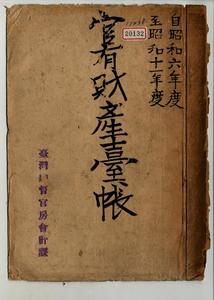 自昭和六年度
至昭和十一年度
20132
官有財產臺帳
臺灣總督官房會計課